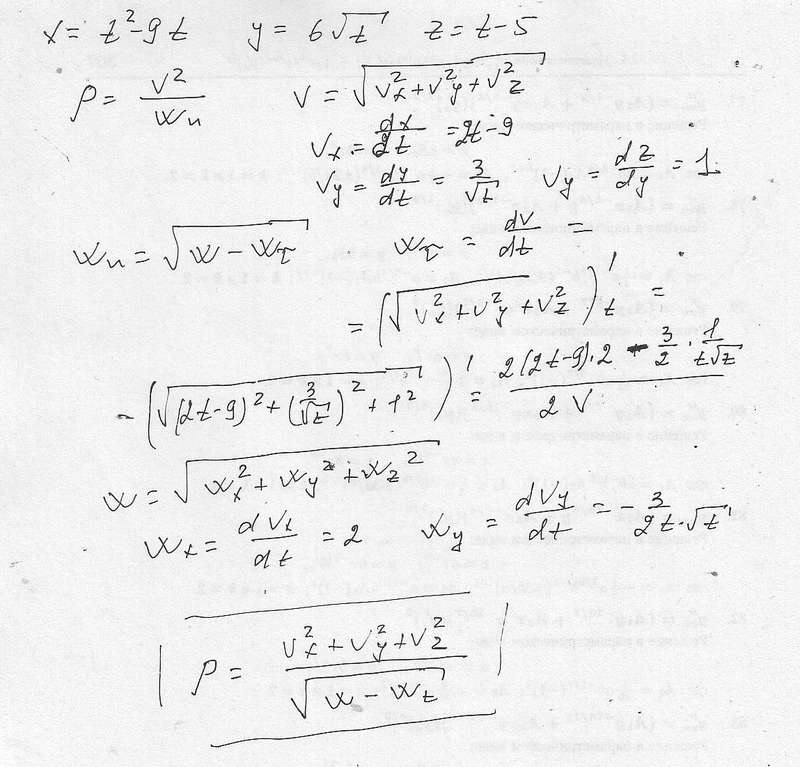 x = t²-9t y = 6√t z = t-5
ρ = v²/w_n v = √(v_x² + v_y² + v_z²)
v_x = dx/2t = 2t-9
v_y = dy/dt = 3/√t v_y = dz/dy = 1
w_n = √(w - w_τ) w_τ = dv/dt =
= (√(v_x² + v_y² + v_z²))'_t =
= (√((2t-9)² + (3/√t)² + 1²))' = (2(2t-9)·2 - 3/2 · 1/(t√z))/(2V)
w = √(w_x² + w_y² + w_z²)
w_x = dv_x/dt = 2 w_y = dv_y/dt = - 3/(2t·√t)
| ρ = (v_x² + v_y² + v_z²)/√(w - w_t) |